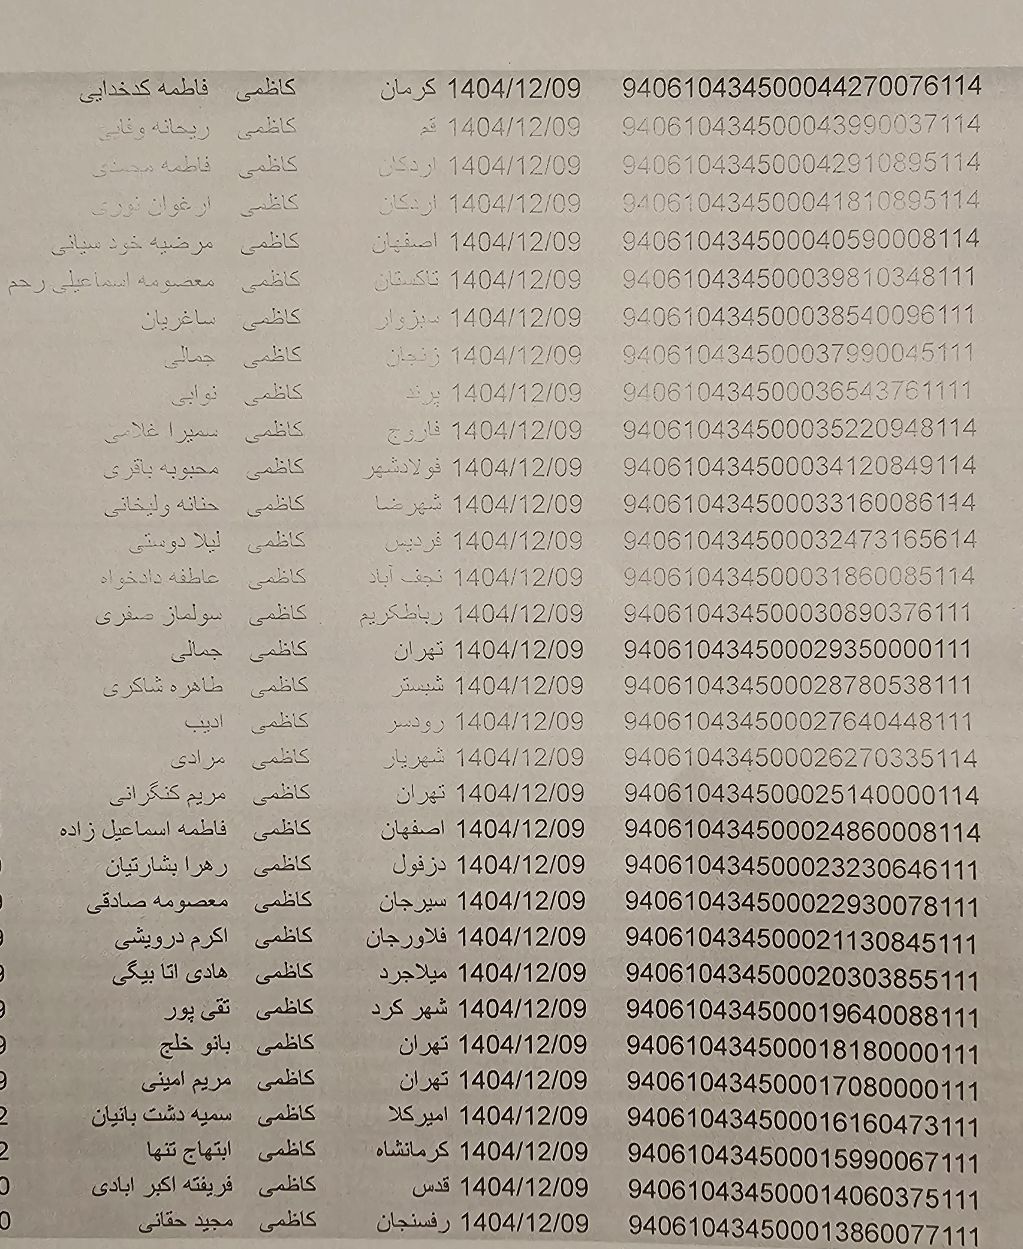 940610434500044270076114 1404/12/09 کرمان کاظمی فاطمه کدخدایی
940610434500043990037114 1404/12/09 قم کاظمی ریحانه وفایی
940610434500042910895114 1404/12/09 اردکان کاظمی فاطمه
940610434500041810895114 1404/12/09 اردکان کاظمی ارغوان نوری
940610434500040590008114 1404/12/09 اصفهان کاظمی مرضیه خود سیانی
940610434500039810348111 1404/12/09 تاکستان کاظمی معصومه اسماعیلی رحم
940610434500038540096111 1404/12/09 سبزوار کاظمی ساغریان
940610434500037990045111 1404/12/09 زنجان کاظمی جمالی
940610434500036543761111 1404/12/09 پرند کاظمی نوابی
940610434500035220948114 1404/12/09 فاروج کاظمی سمیرا غلامی
940610434500034120849114 1404/12/09 فولادشهر کاظمی محبوبه باقری
940610434500033160086114 1404/12/09 شهرضا کاظمی حنانه ولیخانی
940610434500032473165614 1404/12/09 فردیس کاظمی لیلا دوستی
940610434500031860085114 1404/12/09 نجف آباد کاظمی عاطفه دادخواه
940610434500030890376111 1404/12/09 رباطکریم کاظمی سولماز صفری
940610434500029350000111 1404/12/09 تهران کاظمی جمالی
940610434500028780538111 1404/12/09 شبستر کاظمی طاهره شاکری
940610434500027640448111 1404/12/09 رودسر کاظمی ادیب
940610434500026270335114 1404/12/09 شهریار کاظمی مرادی
940610434500025140000114 1404/12/09 تهران کاظمی مریم کنگرانی
940610434500024860008114 1404/12/09 اصفهان کاظمی فاطمه اسماعیل زاده
940610434500023230646111 1404/12/09 دزفول کاظمی رهرا بشارتیان
940610434500022930078111 1404/12/09 سیرجان کاظمی معصومه صادقی
940610434500021130845111 1404/12/09 فلاورجان کاظمی اکرم درویشی
940610434500020303855111 1404/12/09 میلاجرد کاظمی هادی اتا بیگی
940610434500019640088111 1404/12/09 شهر کرد کاظمی تقی پور
940610434500018180000111 1404/12/09 تهران کاظمی بانو خلج
940610434500017080000111 1404/12/09 تهران کاظمی مریم امینی
940610434500016160473111 1404/12/09 امیرکلا کاظمی سمیه دشت بانیان
940610434500015990067111 1404/12/09 کرمانشاه کاظمی ابتهاج تنها
940610434500014060375111 1404/12/09 قدس کاظمی فریفته اکبر ابادی
940610434500013860077111 1404/12/09 رفسنجان کاظمی مجید حقانی